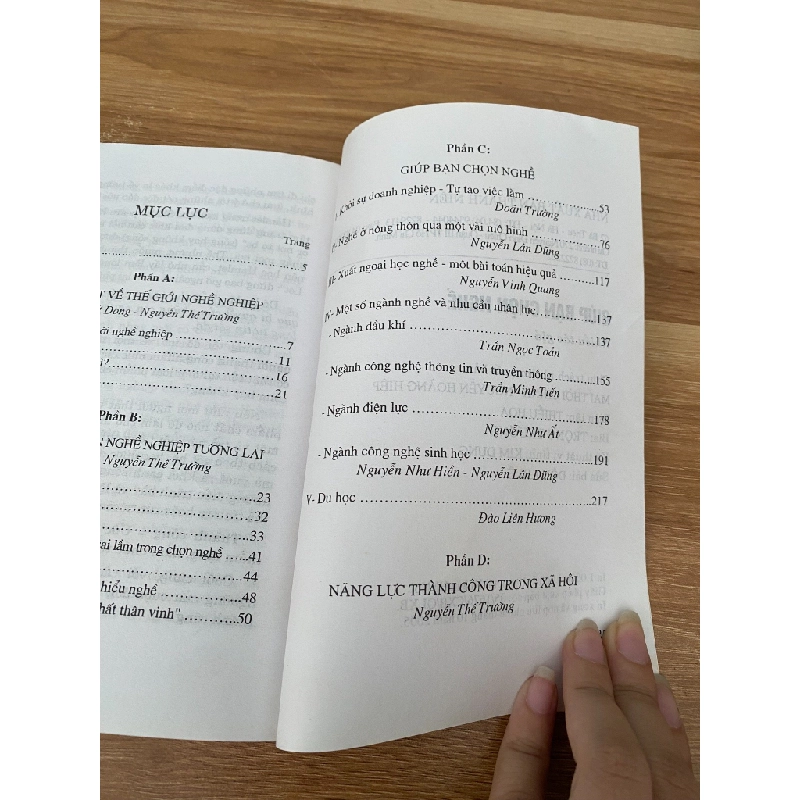 MỤC LỤC
Trang
5
Phần A:
VỀ THẾ GIỚI NGHỀ NGHIỆP
Dong - Nguyễn Thế Trường
nghề nghiệp 7
11
16
21
Phần B:
NGHỀ NGHIỆP TƯƠNG LAI
Nguyễn Thế Trường
23
32
33
lầm trong chọn nghề 41
44
hiểu nghề 48
thân vinh" 50
Phần C:
GIÚP BẠN CHỌN NGHỀ
Khởi sự doanh nghiệp - Tự tạo việc làm 53
Doãn Trường
Nghề ở nông thôn qua một vài mô hình 76
Nguyễn Lân Dũng
Xuất ngoại học nghề - một bài toán hiệu quả 117
Nguyễn Vinh Quang
IV- Một số ngành nghề và nhu cầu nhân lực 137
- Ngành dầu khí 137
Trần Ngọc Toản
- Ngành công nghệ thông tin và truyền thông 155
Trần Minh Tiến
- Ngành điện lực 178
Nguyễn Như Ất
- Ngành công nghệ sinh học 191
Nguyễn Như Hiền - Nguyễn Lân Dũng
V- Du học 217
Đào Liên Hương
Phần D:
NĂNG LỰC THÀNH CÔNG TRONG XÃ HỘI
Nguyễn Thế Trường